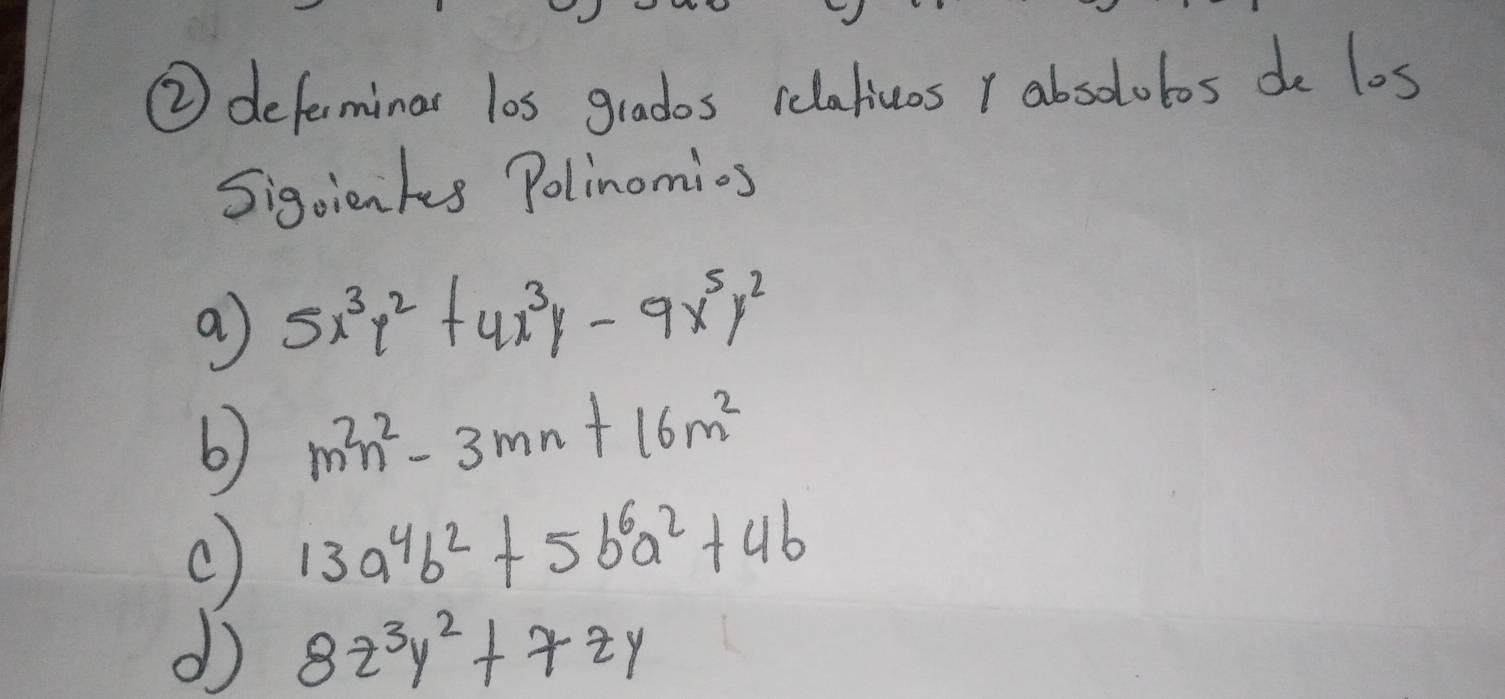 ② determinar los grados relativos y absolutos de los
Siguientes Polinomios
a) 5x³y² + 4x³y - 9x⁵y²
b) m²n² - 3mn + 16m²
c) 13a⁴b² + 5b⁶a² + 4b
d) 8z³y² + 7zy